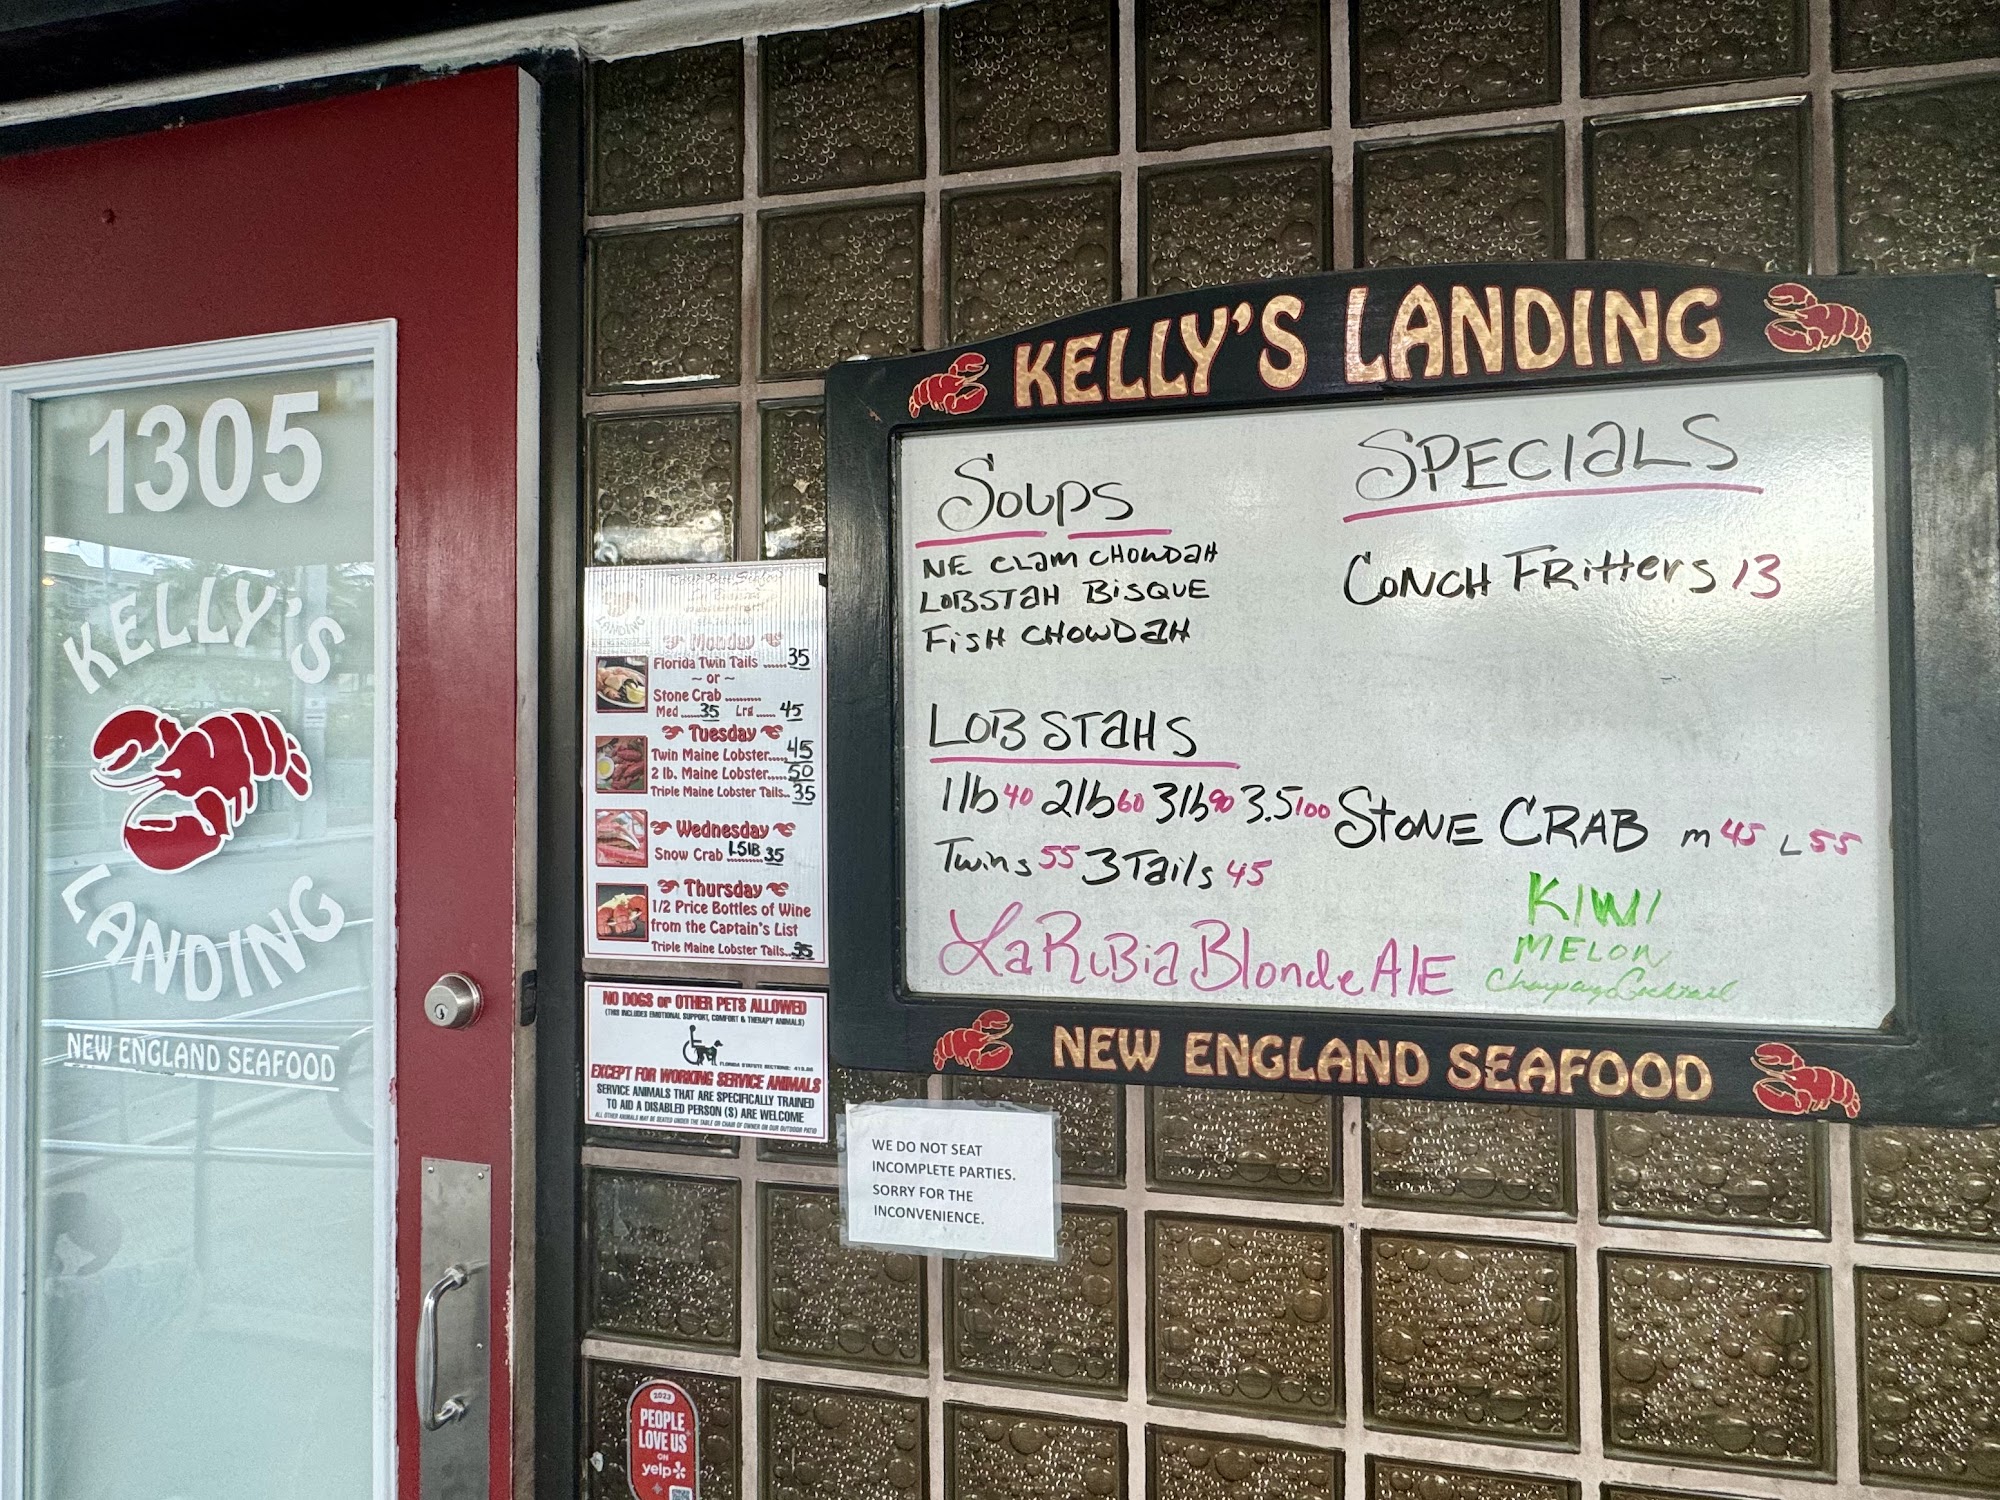 1305
KELLY'S
LANDING
NEW ENGLAND SEAFOOD
LANDING
Monday
Florida Twin Tails ...... 35
~ or ~
Stone Crab ..........
Med ..... 35 Lrg ..... 45
Tuesday
Twin Maine Lobster..... 45
2 lb. Maine Lobster..... 50
Triple Maine Lobster Tails.. 35
Wednesday
Snow Crab 1.5lB 35
Thursday
1/2 Price Bottles of Wine
from the Captain's List
Triple Maine Lobster Tails.. 35
NO DOGS or OTHER PETS ALLOWED
(THIS INCLUDES EMOTIONAL SUPPORT, COMFORT & THERAPY ANIMALS)
EXCEPT FOR WORKING SERVICE ANIMALS
SERVICE ANIMALS THAT ARE SPECIFICALLY TRAINED
TO AID A DISABLED PERSON (S) ARE WELCOME
ALL OTHER ANIMALS MAY BE SEATED UNDER THE TABLE OR CHAIR OF OWNER ON OUR OUTDOOR PATIO
KELLY'S LANDING
SOUPS
NE CLAM CHOWDAH
LOBSTAH BISQUE
FISH CHOWDAH
LOBSTAHS
1lb 40 2lb 60 3lb 90 3.5 100
Twins 55 3 Tails 45
La RuBia Blonde AlE
SPECIALS
CONCH FRitters 13
STONE CRAB m 45 L 55
KIWI
MELON
NEW ENGLAND SEAFOOD
WE DO NOT SEAT
INCOMPLETE PARTIES.
SORRY FOR THE
INCONVENIENCE.
2023
PEOPLE
LOVE US
ON
yelp